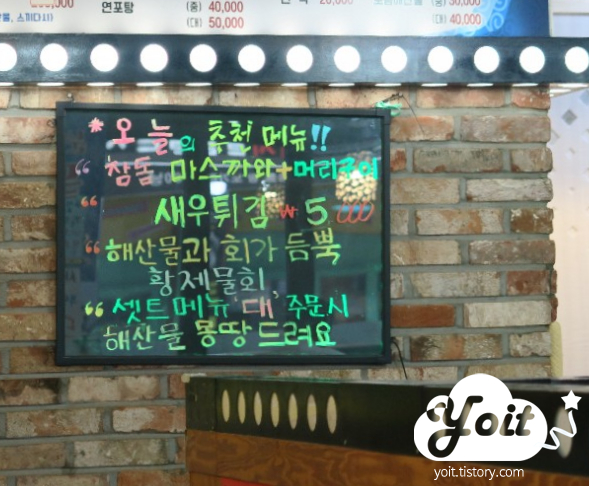 연포탕
(중) 40,000
(대) 50,000
(대) 40,000
* 오늘의 추천 메뉴!!
" 참돔 마스까와+머리구이
" 새우튀김 ₩ 5000
" 해산물과 회가 듬뿍
황제물회
" 셋트메뉴 '대' 주문시
해산물 몽땅 드려요
Yoit
yoit.tistory.com